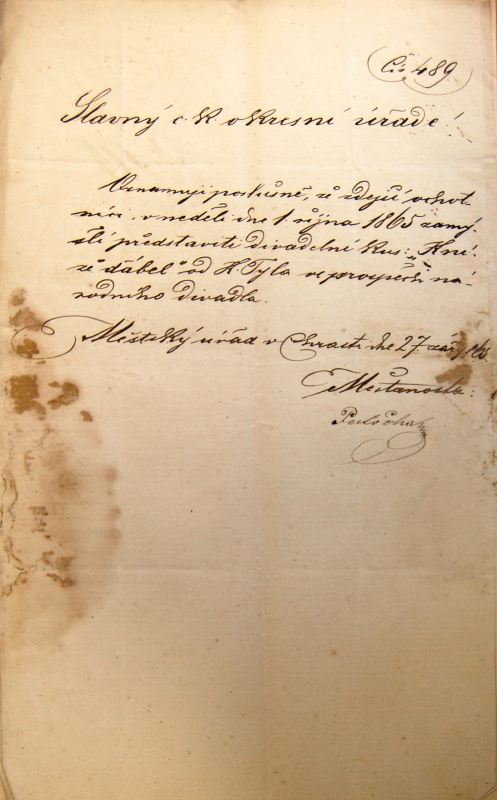 Čís 489.
Slavný c. k. okresní úřade!
Oznamuji poslušně, že zdejší ochot-
níci, v neděli dne 1 října 1865 zamý-
šlí představiti divadelní kus: „Kní-
že ďábel“ od K. Tyla ve prospěch ná-
rodního divadla.
Městský úřad v Chrasti dne 27. září
Měšťanosta: